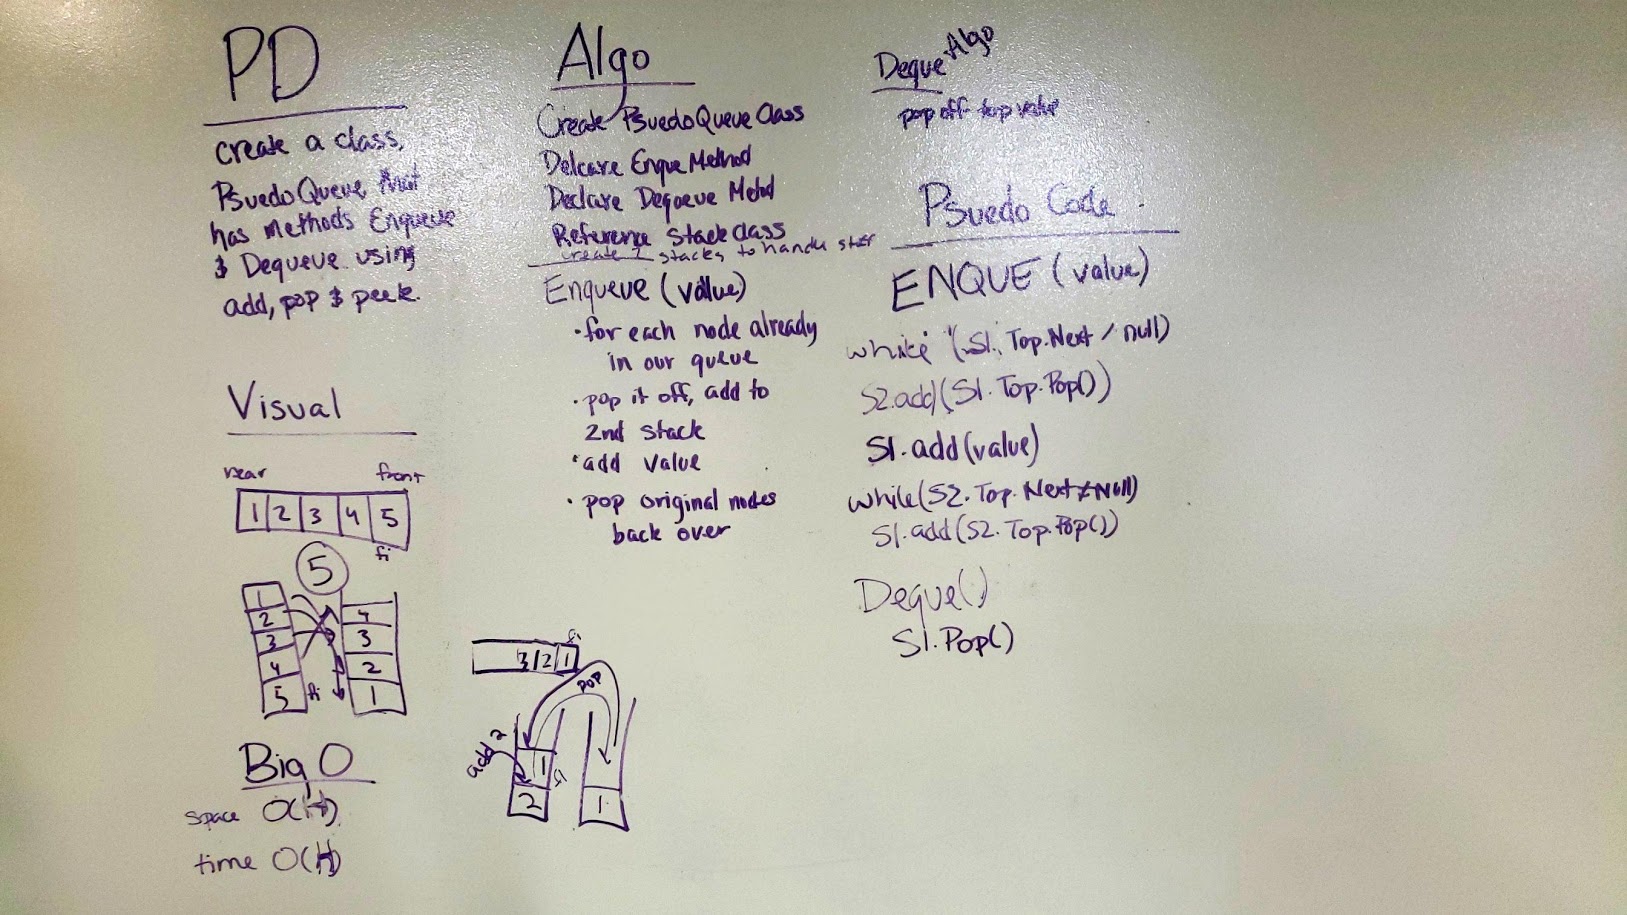 PD
create a class,
PsuedoQueue that
has methods Enqueue
& Dequeue using
add, pop & peek.
Visual
rear front
1 2 3 4 5
fi
5
1
2
3
4
5 fi
4
3
2
1
Big O
space O(
time O(
Algo
Create PsuedoQueue Class
Delcare Enque Method
Declare Dequeue Methd
Reference Stack class
create 2 stacks to handle stuff
Enqueue (value)
• for each node already
in our queue
• pop it off, add to
2nd stack
• add value
• pop original nodes
back over
fi
3 2 1
pop
add 2
1
fi
2
1
Deque Algo
pop off top value
Psuedo Code
ENQUE (value)
while (S1. Top.Next / null)
S2.add(S1.Top.Pop())
S1.add(value)
while(S2.Top.Next ≠ Null)
S1.add(S2.Top.Pop())
Deque()
S1.Pop()